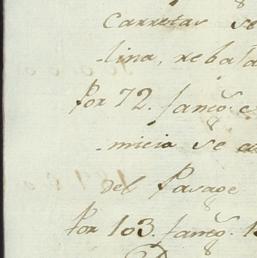 Carretas se
-lina, rebasa
Por 72. fanec.s e
-micia se a
del Pasage
Por 103. fanec.s 1